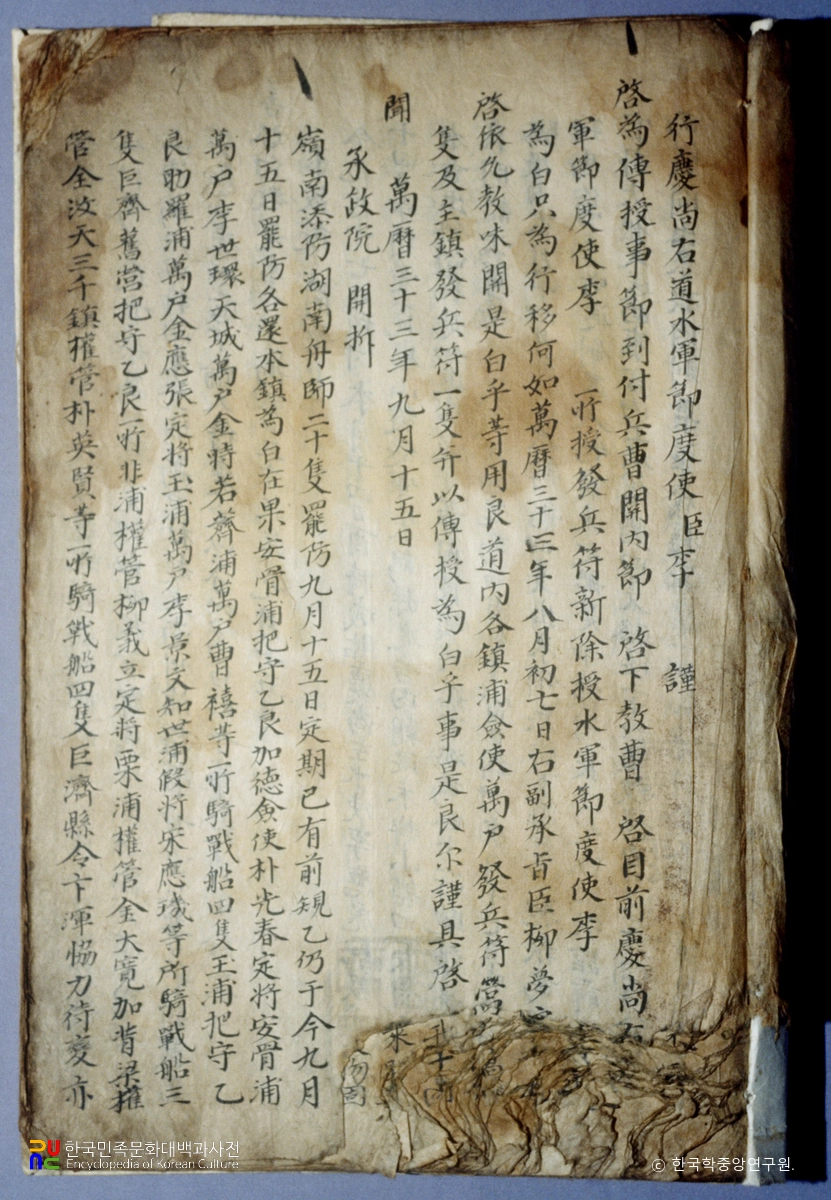 行慶尚右道水軍節度使臣李 謹
啓為傳授事節到付兵曹關內節 啓下教曹 啓目前慶尚右
軍節度使李 所授發兵符新除授水軍節度使李
為白只為行移何如萬曆三十三年八月初七日右副承旨臣柳夢
啓依允教味關是白乎等用良道內各鎮浦僉使萬户發兵符
隻及主鎮發兵符一隻并以傳授為白乎事是良尔謹具啓
聞 萬曆三十三年九月十五日
承政院 開拆
嶺南添防湖南舟師二十隻罷防九月十五日定期已有前規乙仍于今九月
十五日罷防各還本鎮為白在果安骨浦把守乙良加德僉使朴光春定將安骨浦
萬户李世環天城萬户金特若薺浦萬户曹禧等所騎戰船四隻玉浦把守乙
良助羅浦萬户金應張定將玉浦萬户李景文知世浦假將宋應璣等所騎戰船三
隻巨齊舊營把守乙良所非浦權管柳義立定將栗浦權管金大寬加背梁權
管金汝天三千鎮權管朴英賢等所騎戰船四隻巨濟縣令卞渾協力待変亦
한국민족문화대백과사전
Encyclopedia of Korean Culture
© 한국학중앙연구원.